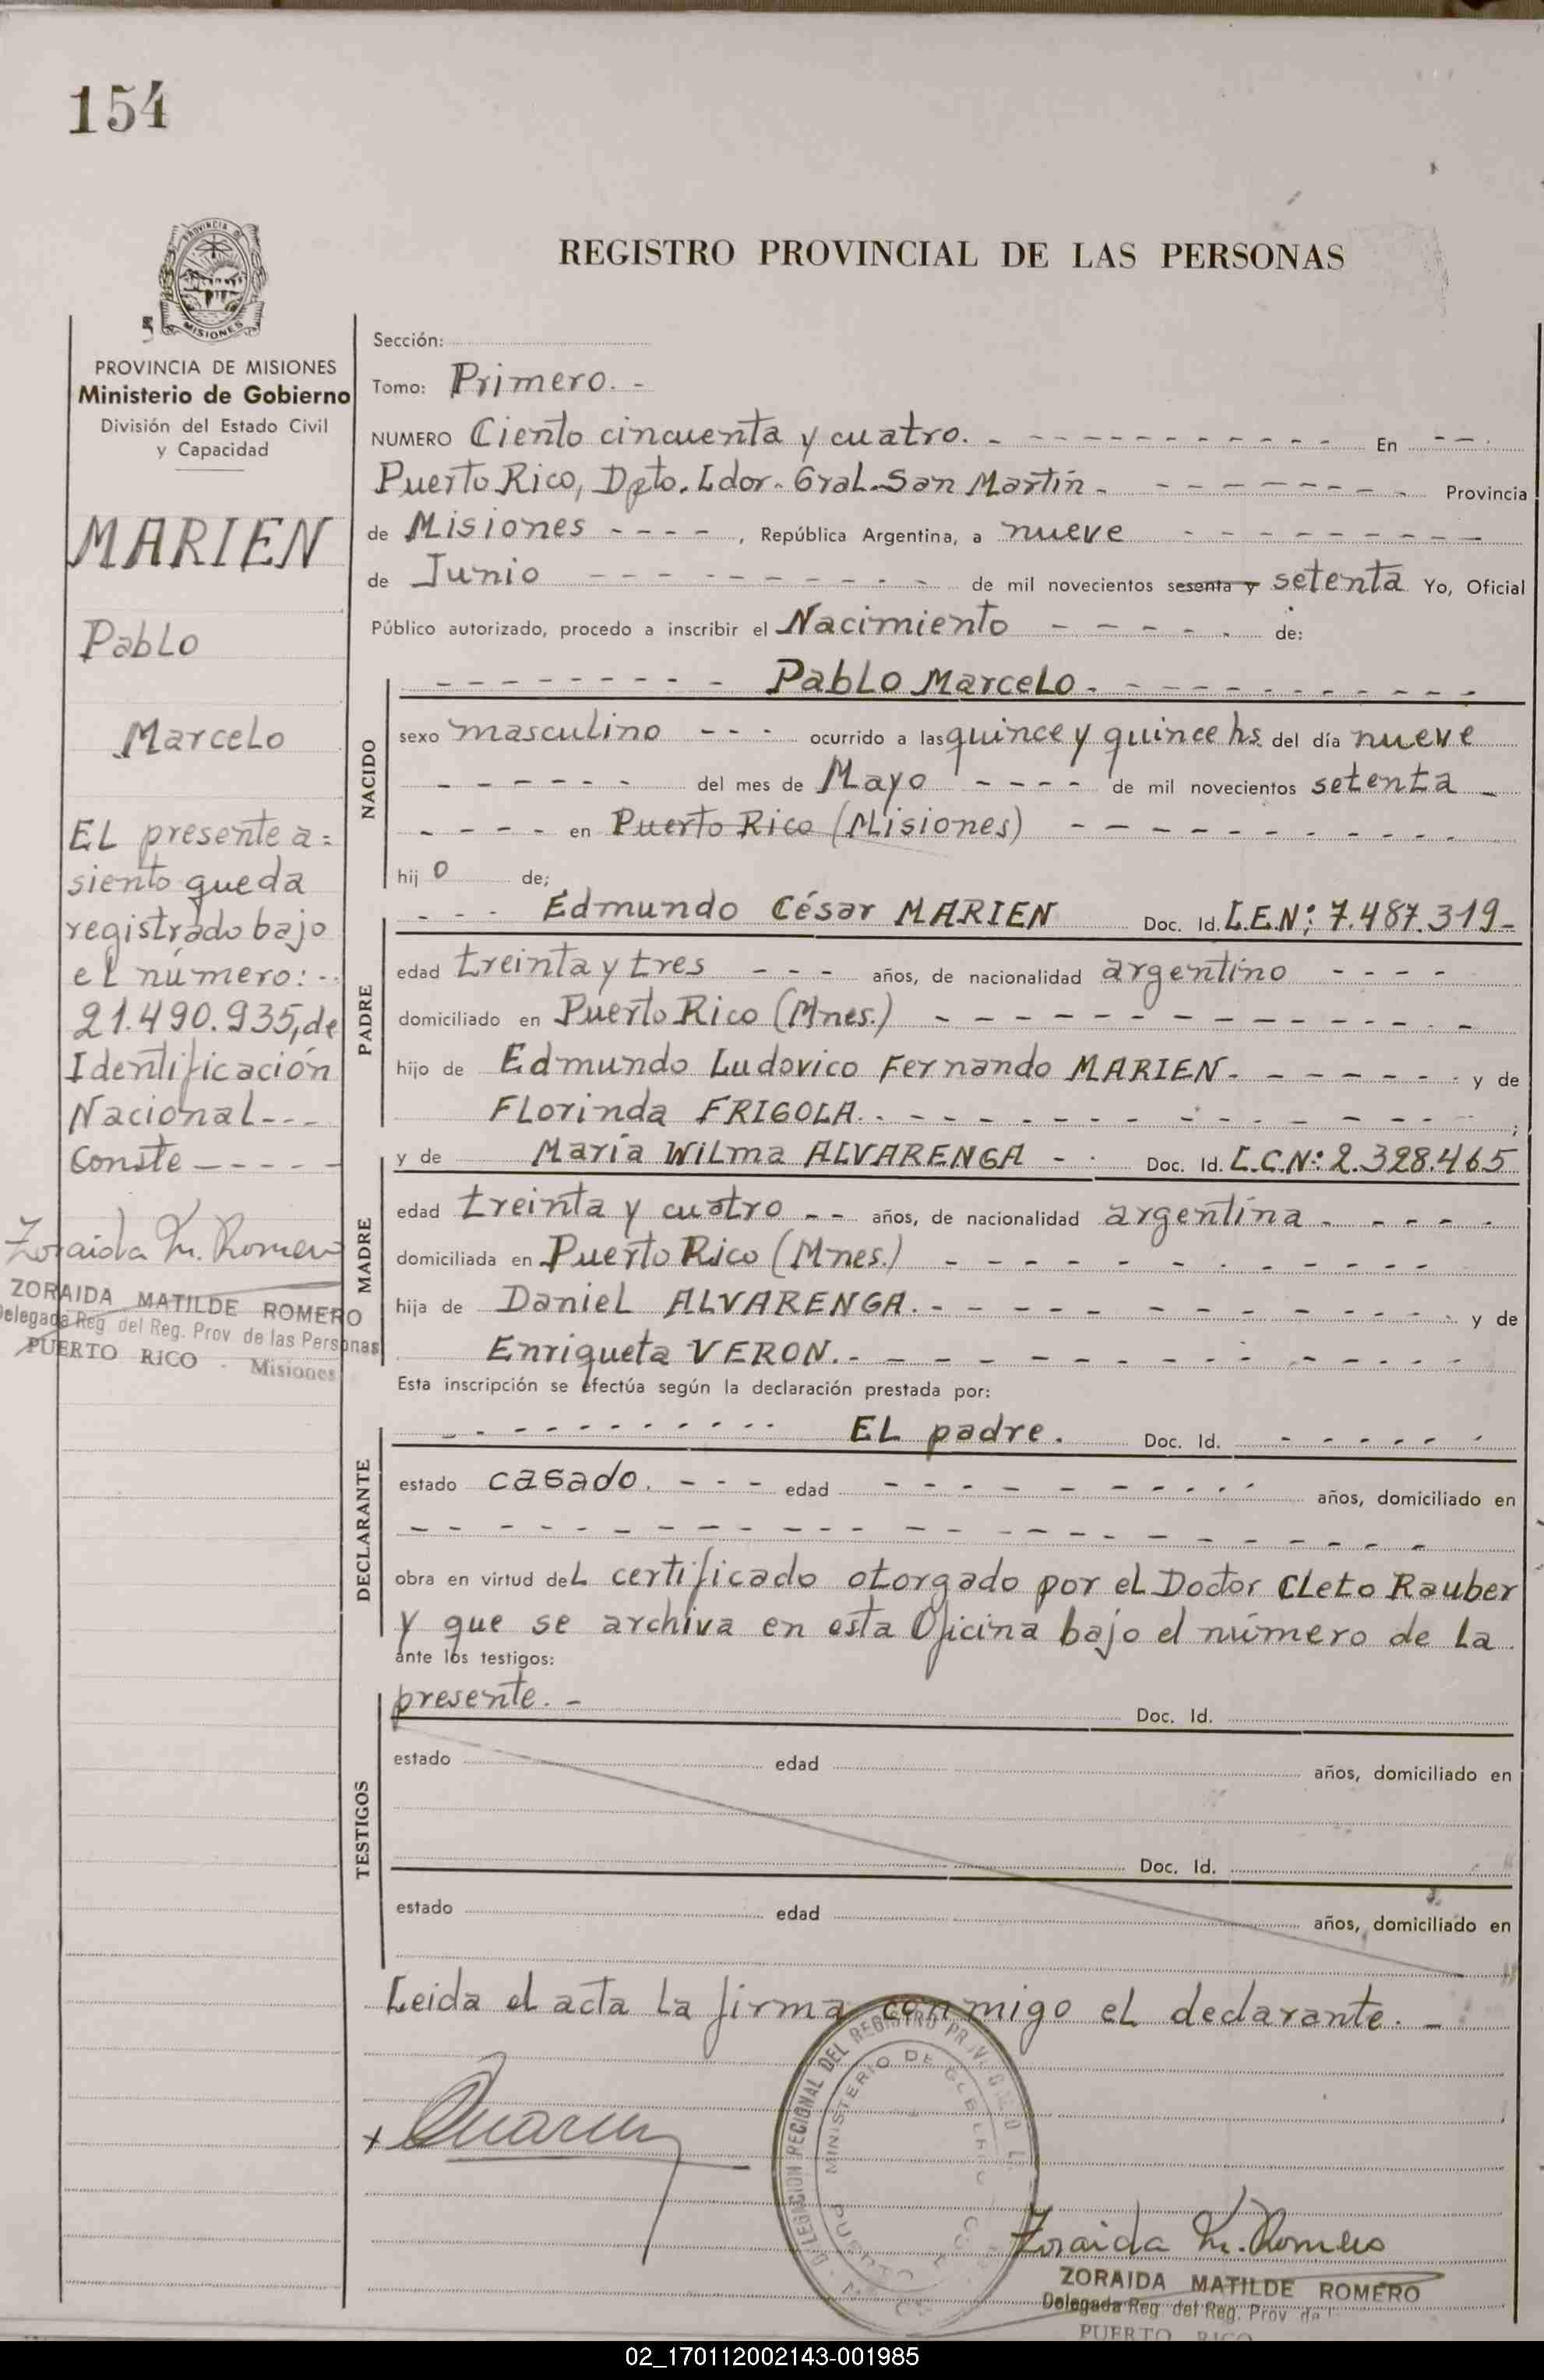 154
PROVINCIA
MISIONES
REGISTRO PROVINCIAL DE LAS PERSONAS
PROVINCIA DE MISIONES
Ministerio de Gobierno
División del Estado Civil
y Capacidad
MARIEN
Pablo
Marcelo
El presente a=
siento queda
registrado bajo
el número: --
21.490.935, de
Identificación
Nacional ---
Conste -----
Zoraida M. Romero
ZORAIDA MATILDE ROMERO
Delegada Reg del Reg. Prov de las Personas
PUERTO RICO - Misiones
Sección:
Tomo: Primero. -
NUMERO Ciento cincuenta y cuatro. - En
Puerto Rico, Dpto. Ldor. Gral. San Martín - Provincia
de Misiones ----, República Argentina, a nueve
de Junio de mil novecientos sesenta y setenta Yo, Oficial
Público autorizado, procedo a inscribir el Nacimiento de:
NACIDO
Pablo Marcelo.
sexo masculino --- ocurrido a las quince y quince hs. del día nueve
del mes de Mayo ---- de mil novecientos setenta -
---- en Puerto Rico (Misiones)
hij o de;
PADRE
Edmundo César MARIEN Doc. Id. L.E.Nº: 7.487.319-
edad treinta y tres --- años, de nacionalidad argentino ----
domiciliado en Puerto Rico (Mnes.)
hijo de Edmundo Ludovico Fernando MARIEN. y de
Florinda FRIGOLA. ;
MADRE
y de María Wilma ALVARENGA - Doc. Id. L.C.Nº: 2.328.465
edad treinta y cuatro -- años, de nacionalidad argentina.
domiciliada en Puerto Rico (Mnes.)
hija de Daniel ALVARENGA. y de
Enriqueta VERON.
Esta inscripción se efectúa según la declaración prestada por:
DECLARANTE
El padre. Doc. Id.
estado casado. --- edad años, domiciliado en
obra en virtud del certificado otorgado por el Doctor Cleto Rauber
y que se archiva en esta Oficina bajo el número de la
ante los testigos:
presente. - Doc. Id.
TESTIGOS
estado edad años, domiciliado en
Doc. Id.
estado edad años, domiciliado en
Leida el acta la firma conmigo el declarante. -
DELEGACION REGIONAL DEL REGISTRO
MINISTERIO DE
x
Zoraida M. Romero
ZORAIDA MATILDE ROMERO
Delegada Reg del Reg. Prov de
PUERTO RICO
02_170112002143-001985